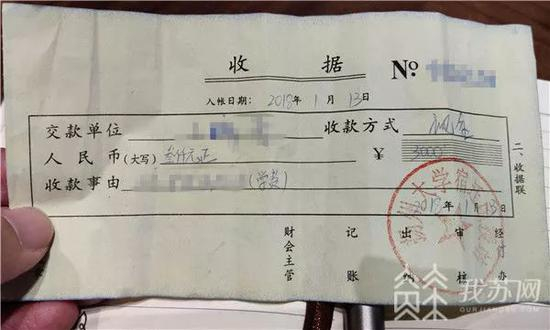 收 据 №
入帐日期: 2018年11月13日
交款单位 收款方式 现金
人民币(大写) 叁仟元正 ¥ 3000
收款事由 (学费)
2018年11月13日
二、收据联
财会主管 记账 出纳 审核 经办
我苏网
OURJIANGSU.COM